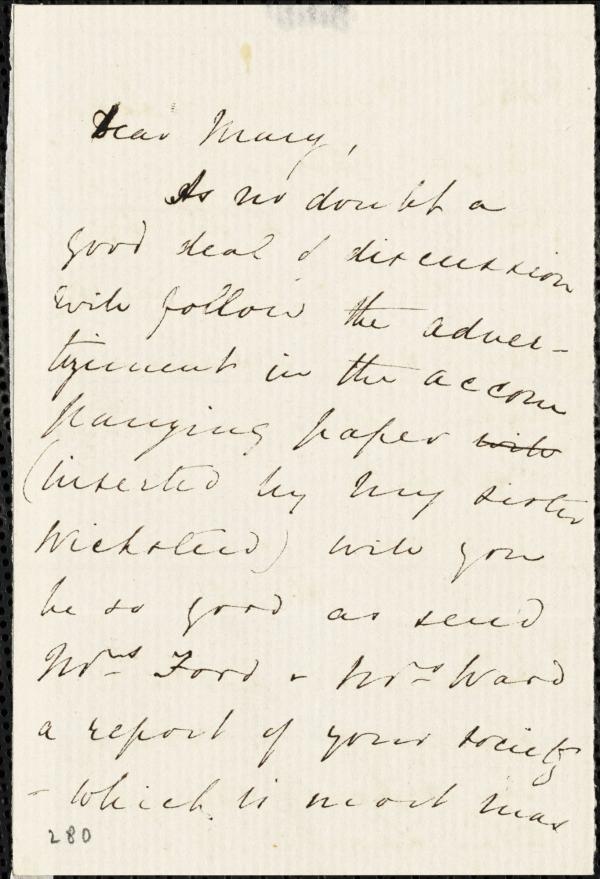 Dear Mary,
As no doubt a
good deal of discussion
will follow the adver-
tizement in the accom
panying paper will
(inserted by my sister
Wicksteed) will you
be so good as send
Mrs Ford & Mrs Ward
a report of your society
- which is most
280